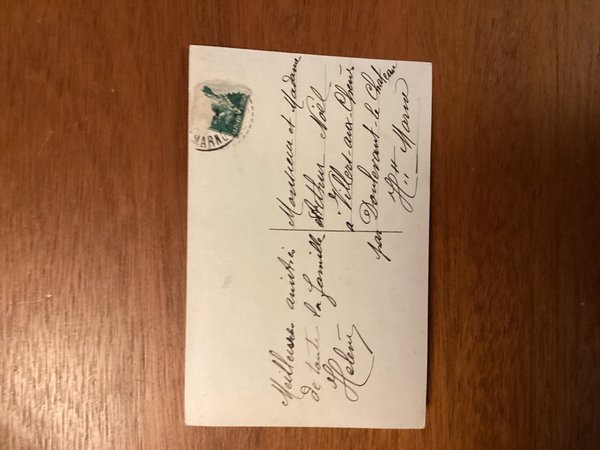 MARNE
Meilleures amitiés
de toute la famille
Helène
Monsieur et Madame
Arthur Noël
a Villers-aux-Chênes
par Doulevant-le-Chateau
Hte Marne